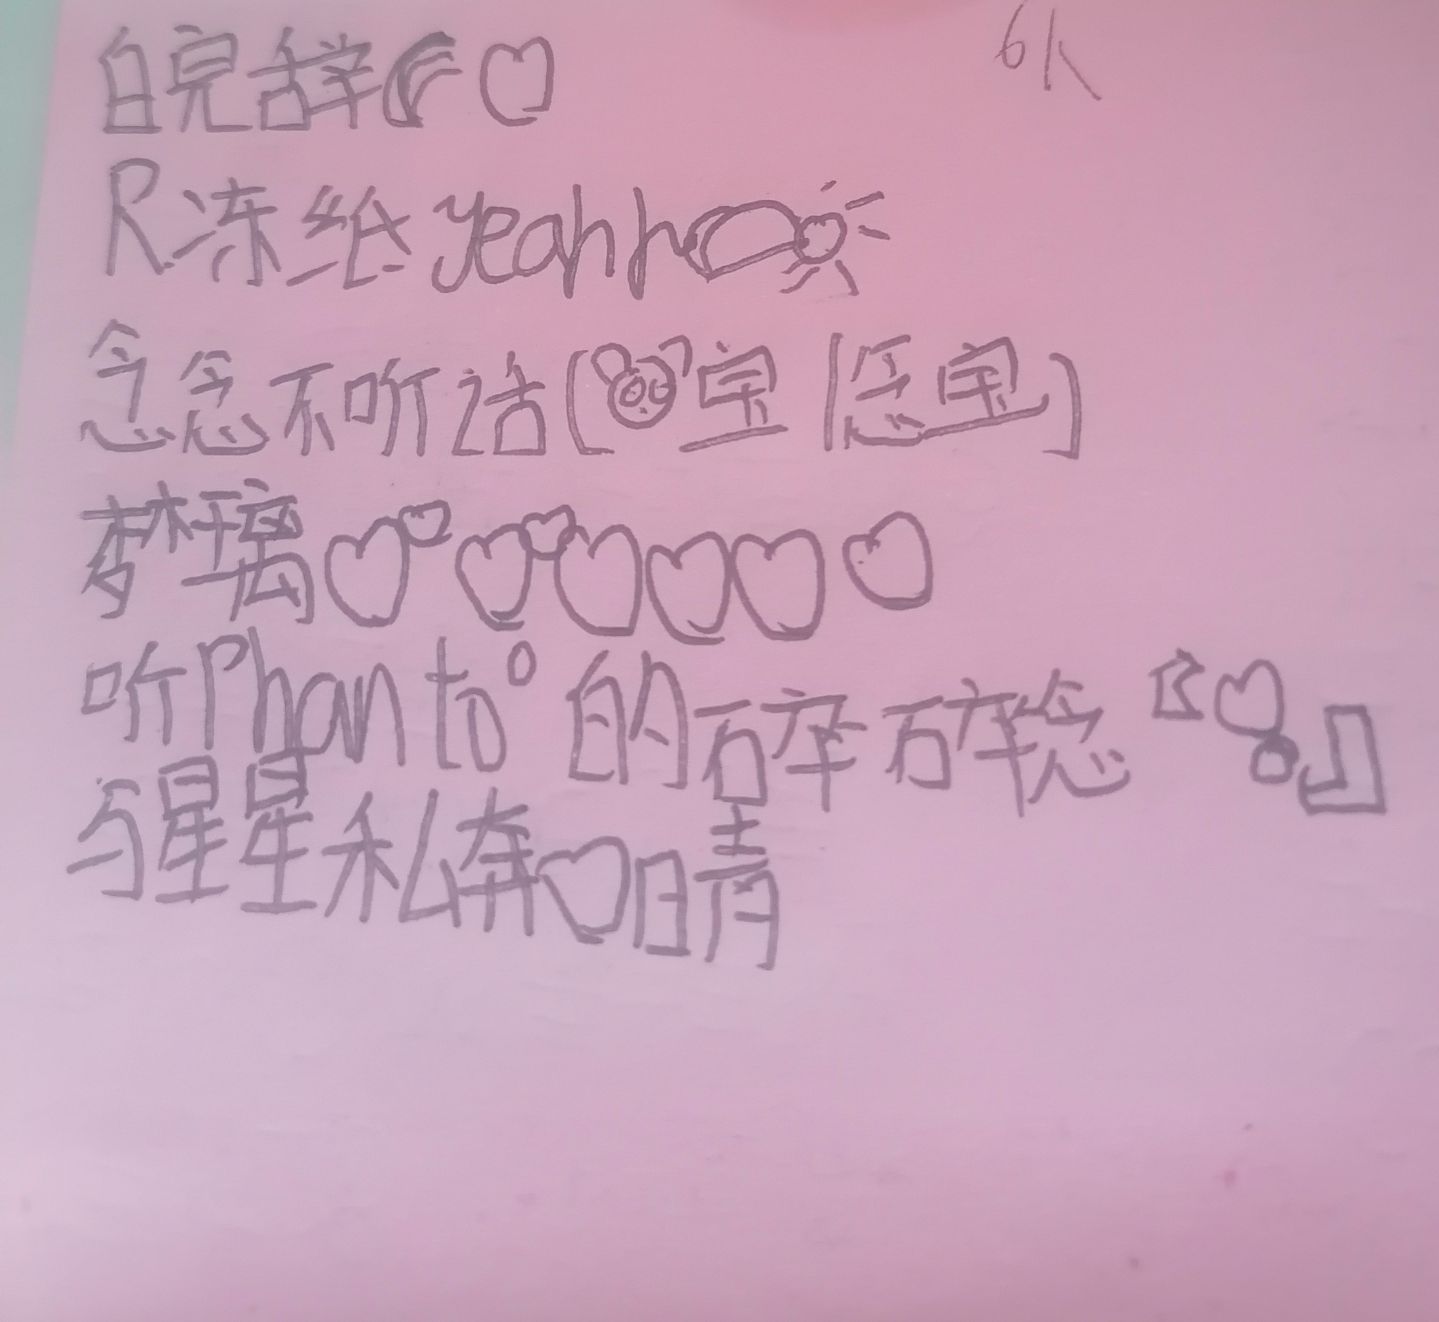 6人
皖辞🌈♡
R冻纸yeahh
念念不听话(宝|念宝)
梦璃♡♡♡♡♡♡♡♡
听Phanto°的碎碎念『♡』
与星星私奔♡晴